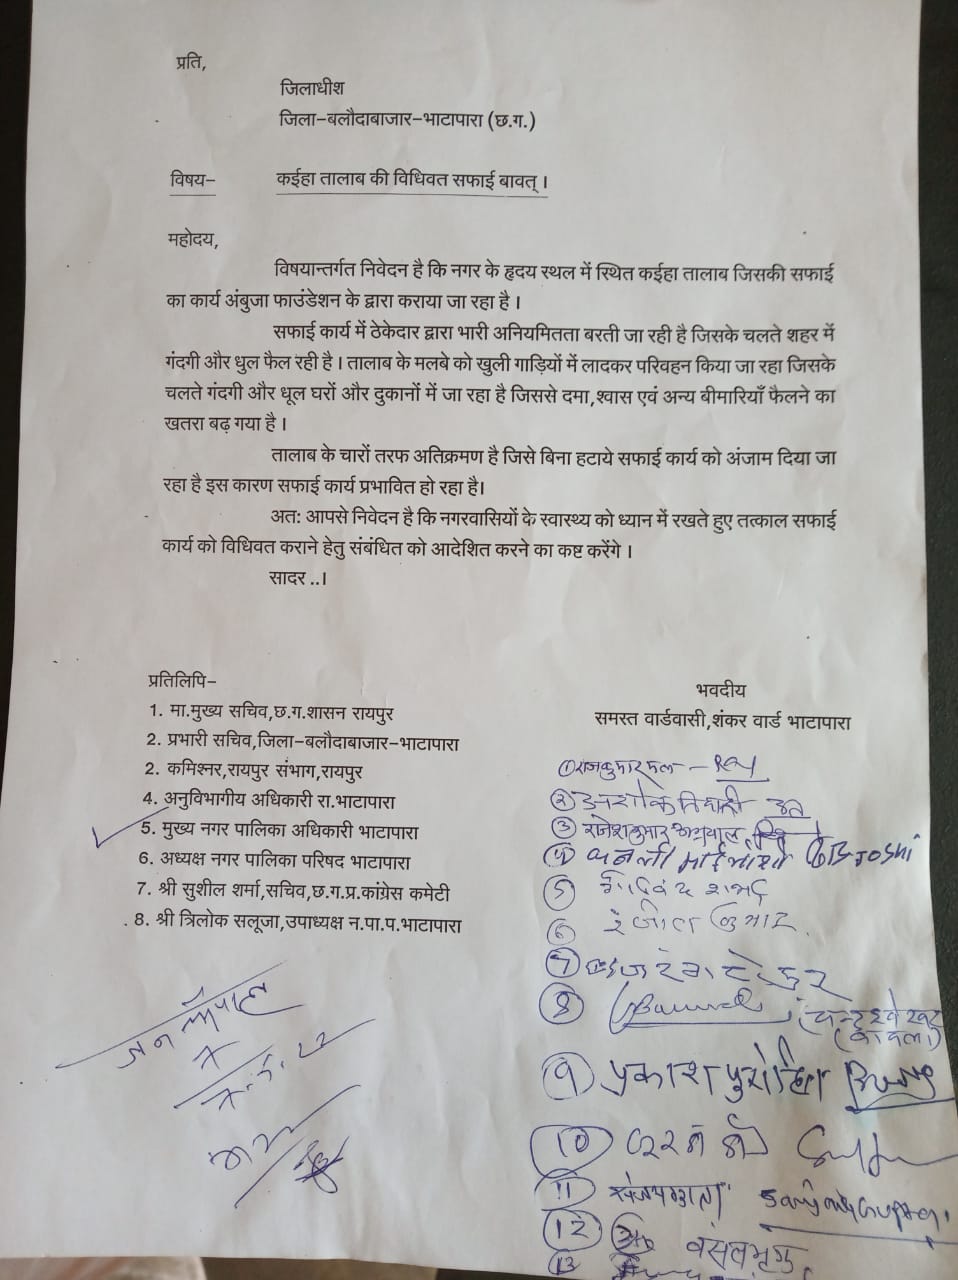 प्रति,
जिलाधीश
जिला-बलौदाबाजार-भाटापारा (छ.ग.)
विषय- कईहा तालाब की विधिवत सफाई बावत् ।
महोदय,
विषयान्तर्गत निवेदन है कि नगर के हृदय स्थल में स्थित कईहा तालाब जिसकी सफाई
का कार्य अंबुजा फाउंडेशन के द्वारा कराया जा रहा है ।
सफाई कार्य में ठेकेदार द्वारा भारी अनियमितता बरती जा रही है जिसके चलते शहर में
गंदगी और धुल फैल रही है । तालाब के मलबे को खुली गाड़ियों में लादकर परिवहन किया जा रहा जिसके
चलते गंदगी और धूल घरों और दुकानों में जा रहा है जिससे दमा,श्वास एवं अन्य बीमारियाँ फैलने का
खतरा बढ़ गया है ।
तालाब के चारों तरफ अतिक्रमण है जिसे बिना हटाये सफाई कार्य को अंजाम दिया जा
रहा है इस कारण सफाई कार्य प्रभावित हो रहा है।
अत: आपसे निवेदन है कि नगरवासियों के स्वास्थ्य को ध्यान में रखते हुए तत्काल सफाई
कार्य को विधिवत कराने हेतु संबंधित को आदेशित करने का कष्ट करेंगे ।
सादर ..।
प्रतिलिपि-
1. मा.मुख्य सचिव,छ.ग.शासन रायपुर
2. प्रभारी सचिव,जिला-बलौदाबाजार-भाटापारा
2. कमिश्नर,रायपुर संभाग,रायपुर
4. अनुविभागीय अधिकारी रा.भाटापारा
5. मुख्य नगर पालिका अधिकारी भाटापारा
6. अध्यक्ष नगर पालिका परिषद भाटापारा
7. श्री सुशील शर्मा,सचिव,छ.ग.प्र.कांग्रेस कमेटी
8. श्री त्रिलोक सलूजा,उपाध्यक्ष न.पा.प.भाटापारा
भवदीय
समस्त वार्डवासी,शंकर वार्ड भाटापारा
① राजकुमार
② अशोक तिवारी
③ राजेश कुमार अग्रवाल
④ JOSHI
⑤ गोविंद शर्मा
⑥ रंजीत कुमार
⑦
⑧
⑨ प्रकाश पुरोहित
⑩
⑪ संजय गुप्ता
⑫
13